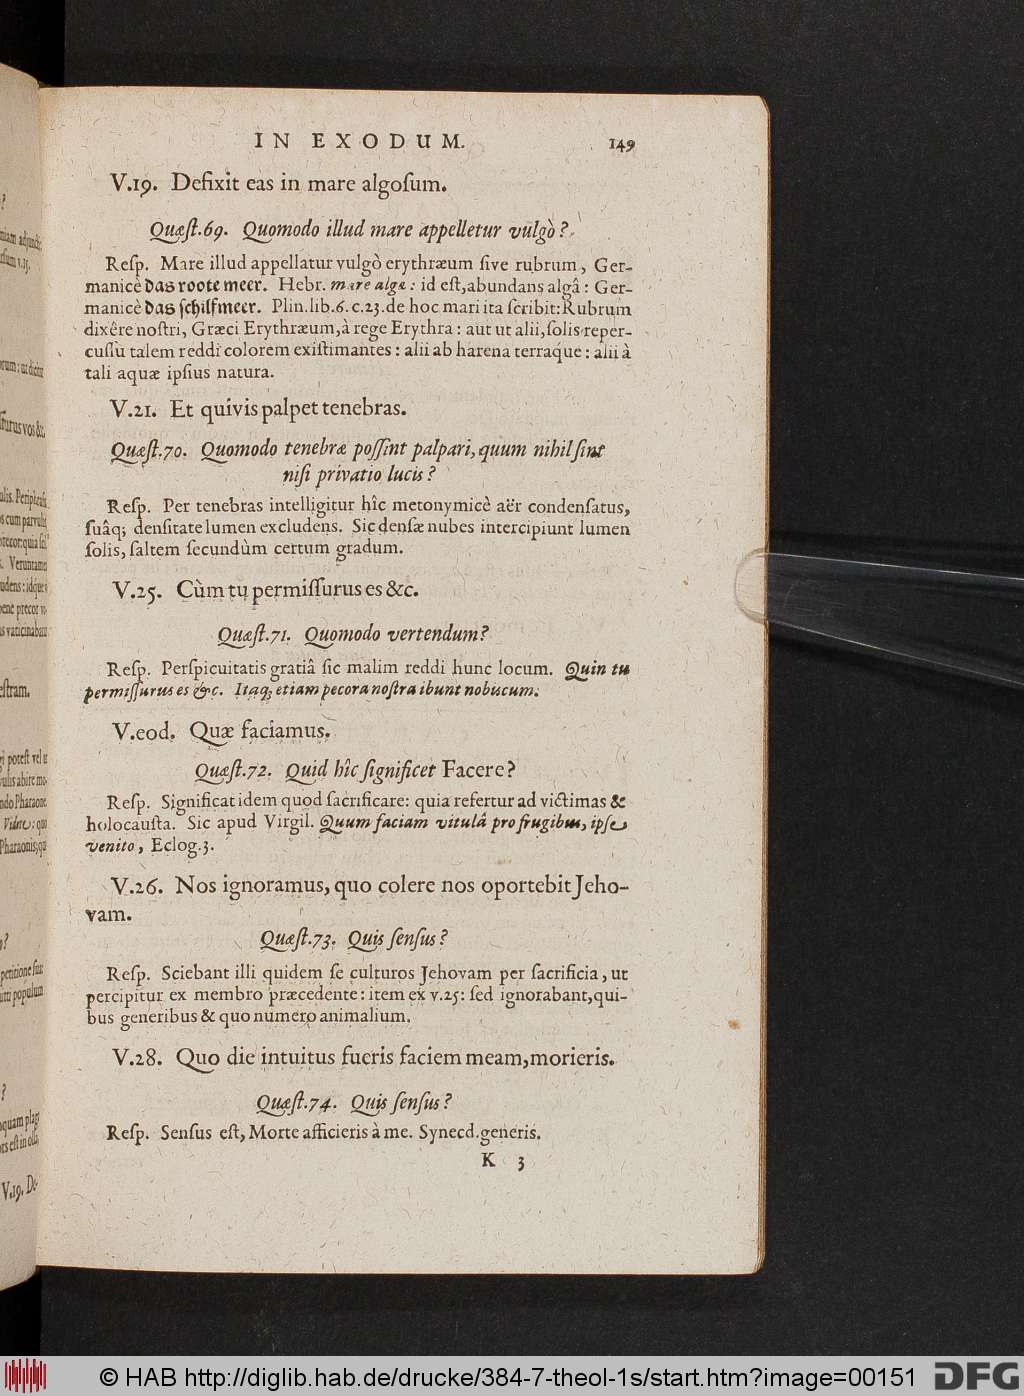 IN EXODUM. 149
V.19. Defixit eas in mare algoſum.
Quæſt.69. Quomodo illud mare appelletur vulgò?
Reſp. Mare illud appellatur vulgò erythræum ſive rubrum, Ger-
manicè das roote meer. Hebr. mare algæ: id eſt, abundans algâ: Ger-
manicè das ſchilfmeer. Plin.lib.6.c.23.de hoc mari ita ſcribit: Rubrum
dixêre noſtri, Græci Erythræum, à rege Erythra: aut ut alii, ſolis reper-
cuſſu talem reddi colorem exiſtimantes: alii ab harena terraque: alii à
tali aquæ ipſius natura.
V.21. Et quivis palpet tenebras.
Quæſt.70. Quomodo tenebræ poſſint palpari, quum nihil ſint
niſi privatio lucis?
Reſp. Per tenebras intelligitur hîc metonymicè aër condenſatus,
ſuâq; denſitate lumen excludens. Sic denſæ nubes intercipiunt lumen
ſolis, ſaltem ſecundùm certum gradum.
V.25. Cùm tu permiſſurus es &c.
Quæſt.71. Quomodo vertendum?
Reſp. Perſpicuitatis gratiâ ſic malim reddi hunc locum. Quin tu
permiſſurus es &c. Itaq; etiam pecora noſtra ibunt nobiscum.
V.eod. Quæ faciamus.
Quæſt.72. Quid hîc ſignificet Facere?
Reſp. Significat idem quod ſacrificare: quia refertur ad victimas &
holocauſta. Sic apud Virgil. Quum faciam vitulâ pro frugibus, ipſe
venito, Eclog.3.
V.26. Nos ignoramus, quo colere nos oportebit Jeho-
vam.
Quæſt.73. Quis ſenſus?
Reſp. Sciebant illi quidem ſe culturos Jehovam per ſacrificia, ut
percipitur ex membro præcedente: item ex v.25: ſed ignorabant, qui-
bus generibus & quo numero animalium.
V.28. Quo die intuitus fueris faciem meam, morieris.
Quæſt.74. Quis ſenſus?
Reſp. Senſus eſt, Morte afficieris à me. Synecd.generis.
K 3
© HAB http://diglib.hab.de/drucke/384-7-theol-1s/start.htm?image=00151
DFG